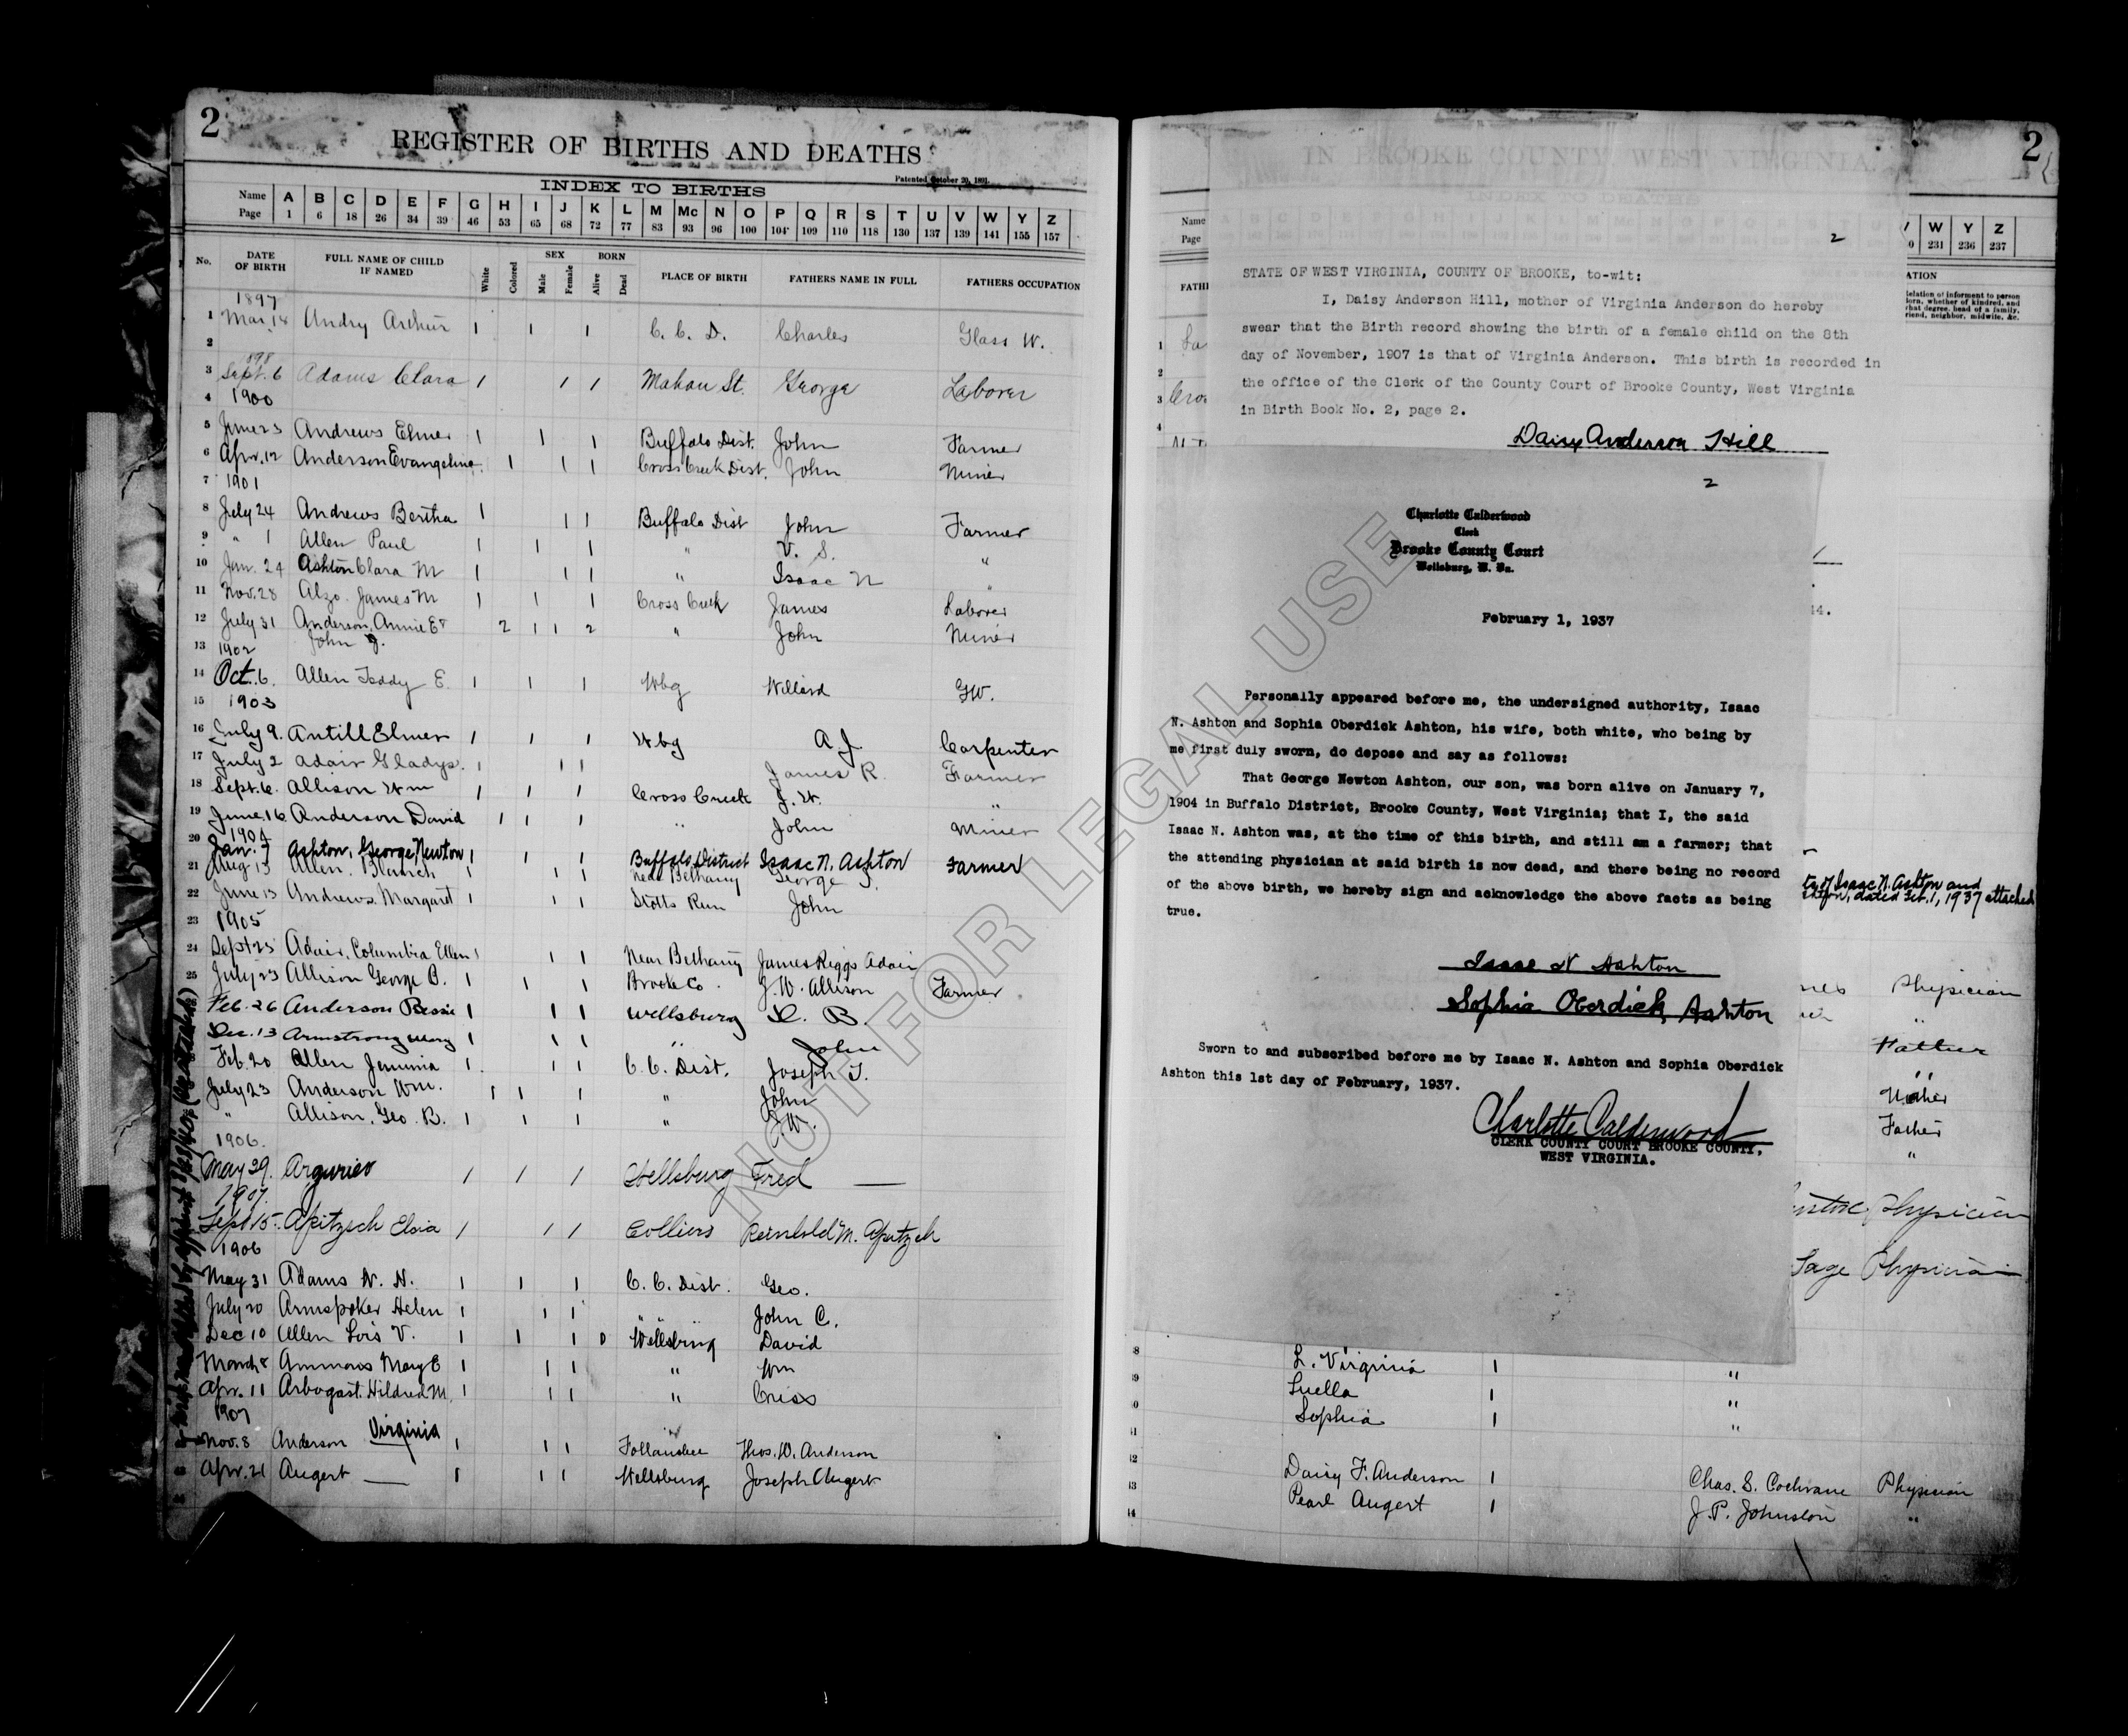 2
REGISTER OF BIRTHS AND DEATHS
Patented October 20, 1891.
INDEX TO BIRTHS
Name A B C D E F G H I J K L M Mc N O P Q R S T U V W Y Z
Page 1 6 18 26 34 39 46 53 65 68 72 77 83 93 96 100 104 109 110 118 130 137 139 141 155 157
No. DATE OF BIRTH FULL NAME OF CHILD IF NAMED White Colored SEX Male Female BORN Alive Dead PLACE OF BIRTH FATHERS NAME IN FULL FATHERS OCCUPATION
1897
1 Mar. 14 Andry Arthur 1 1 1 C. C. D. Charles Glass W.
2
1898
3 Sept. 6 Adams Clara 1 1 1 Mahan St. George Laborer
4 1900
5 June 23 Andrews Elmer 1 1 1 Buffalo Dist. John Farmer
6 Apr. 12 Anderson Evangeline 1 1 1 Cross Creek Dist. John Miner
7 1901
8 July 24 Andrews Bertha 1 1 1 Buffalo Dist John Farmer
9 " 1 Allen Paul 1 1 1 " V. S. "
10 Jan. 24 Ashton Clara M 1 1 1 " Isaac N "
11 Nov. 28 Alzo James M 1 1 1 Cross Creek James Laborer
12 July 31 Anderson, Annie E & 2 1 1 2 " John Miner
13 1902 John J.
14 Oct. 6. Allen Teddy E. 1 1 1 Wbg Willard GW.
15 1903
16 July 9. Antill Elmer 1 1 1 Wbg A J Carpenter
17 July 2 Adair Gladys. 1 1 1 James R. Farmer
18 Sept. 6. Allison Wm 1 1 1 Cross Creek J. W. "
19 June 16 Anderson David 1 1 1 " John Miner
1904
20 Jan. 7 Ashton, George Newton 1 1 1 Buffalo District Isaac N. Ashton Farmer
21 Aug 13 Allen, Blanch 1 1 1 Near Bethany George
22 June 13 Andrews Margaret 1 1 1 Stotts Run John
23 1905
24 Sept 25 Adair, Columbia Ellen 1 1 1 Near Bethany James Riggs Adair
25 July 23 Allison George B. 1 1 1 Brooke Co. J. W. Allison Farmer
Feb. 26 Anderson Bessie 1 1 1 Wellsburg
Dec. 13 Armstrong Mary 1 1 1 " John
Feb. 20 Allen Jemima 1 1 1 C. C. Dist. Joseph T.
July 23 Anderson Wm. 1 1 1 " John
" Allison, Geo. B. 1 1 1 " J W.
1906.
May 29. Argurieo 1 1 1 Wellsburg Fred —
1907.
Sept 15- Apitzsch Elsia 1 1 1 Colliers Reinhold M. Apitzsch
1906
May 31 Adams W. H. 1 1 1 C. C. Dist. Geo.
July 20 Armspoker Helen 1 1 1 " " John C.
Dec 10 Allen Lois V. 1 1 1 0 Wellsburg David
March 8 Ammons Mary E 1 1 1 " Wm
Apr. 11 Arbogast. Hildred M. 1 1 1 " Criss
1907
Nov. 8 Anderson Virginia 1 1 1 Follansbee Thos. W. Anderson
Apr. 21 Augert — 1 1 1 Wellsburg Joseph Augert
2
IN BROOKE COUNTY, WEST VIRGINIA.
INDEX TO DEATHS
Name
Page
W Y Z
231 236 237
2
STATE OF WEST VIRGINIA, COUNTY OF BROOKE, to-wit:
I, Daisy Anderson Hill, mother of Virginia Anderson do hereby
swear that the Birth record showing the birth of a female child on the 8th
day of November, 1907 is that of Virginia Anderson. This birth is recorded in
the office of the Clerk of the County Court of Brooke County, West Virginia
in Birth Book No. 2, page 2.
Daisy Anderson Hill
2
Charlotte Calderwood
Clerk
Brooke County Court
Wellsburg, W. Va.
February 1, 1937
Personally appeared before me, the undersigned authority, Isaac
N. Ashton and Sophia Oberdick Ashton, his wife, both white, who being by
me first duly sworn, do depose and say as follows:
That George Newton Ashton, our son, was born alive on January 7,
1904 in Buffalo District, Brooke County, West Virginia; that I, the said
Isaac N. Ashton was, at the time of this birth, and still am a farmer; that
the attending physician at said birth is now dead, and there being no record
of the above birth, we hereby sign and acknowledge the above facts as being
true.
Isaac N Ashton
Sophia Oberdick Ashton
Sworn to and subscribed before me by Isaac N. Ashton and Sophia Oberdick
Ashton this 1st day of February, 1937.
Charlotte Calderwood
CLERK COUNTY COURT BROOKE COUNTY,
WEST VIRGINIA.
of Isaac N. Ashton and
dated Feb. 1, 1937 attached
Physician
"
Father
"
Father
"
Physician
Sage Physician
L. Virginia 1 "
Luella 1 "
Sophia 1 "
Daisy F. Anderson 1 Chas. S. Cochrane Physician
Pearl Augert 1 J. P. Johnston "
NOT FOR LEGAL USE